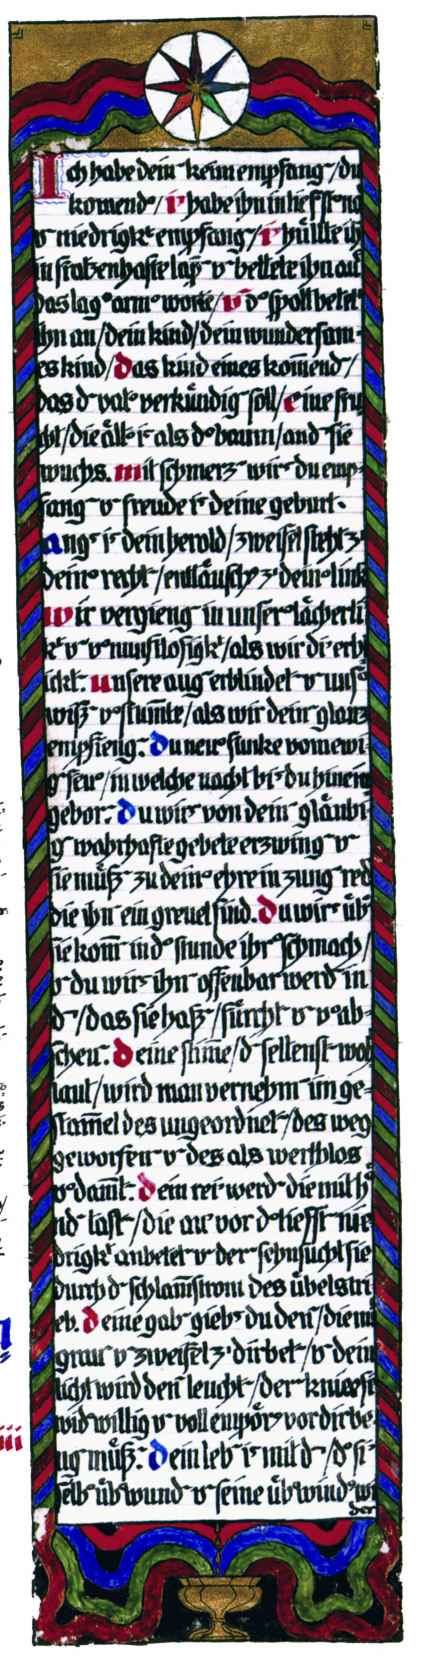 Ich habe dein keim empfang/du
komend/ i habe ihn in tieffst nọ
v niedrigkt empfang/ i hüllte ih
in
das lag arm worte/ v d spott betet
ihn an/dein kind/dein wundersam
es kind/das kind eines komend/
das d vat verkündig soll/eine fru
cht/die ält i als d baum/and sie
wuchs. mit schmerz wir du emp
fang v freude i deine geburt.
ang i dein herold/zweifel steht z
dein recht/enttäusch z dein link
wir vergieng in unser lächerli
kt v vnunftlosigkt/als wir di erb
ickt. unsere aug erblindet v uns
wiß vstumte/als wir dein glanz
empfieng. du neu funke vom ewi
g feu/in welche nacht bi du hinein
gebor. du wir von dein gläubi
g wahrhafte gebete erzwing v
sie müß zu dein ehre in zung red
die ihn ein greuel sind. du wir üb
sie kom in d stunde ihr schmach/
v du wir ihn offenbar werd in
d/das sie haß/fürcht v vab
scheu. deine stime/d seltenst wohl
laut/wird man vernehm im ge
stamel des ungeordnet/des weg
geworfen v des als werthlos
vdamt. dein rei werd die mit h
nd tast/die au vor d tieffst nie
drigkt anbetet v der sehnsucht sie
durch d schlamstrom des übels tri
eb. deine gab gieb du den/die mit
grau v zweifel z dir bet/v dein
licht wird den leucht/der knie si
widwillig v voll empör vor dir be
ug müß. dein leb i mit d/d si
selb übwund v seine übwind wi
der